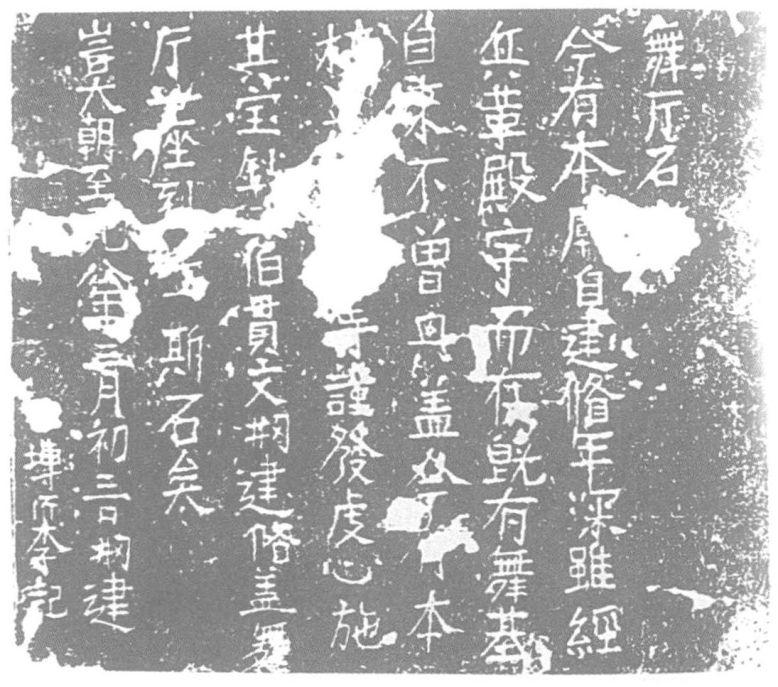 舞厅石
今有本庿自建脩年深雖經
兵革殿宇而在既有舞基
自来不曾興盖今有本
村等謹發虔心施
其宝鈔伯貫文刱建脩盖舞
厅一座刻斯石矣
旹大朝至元年三月初三日刱建
塼匠李記